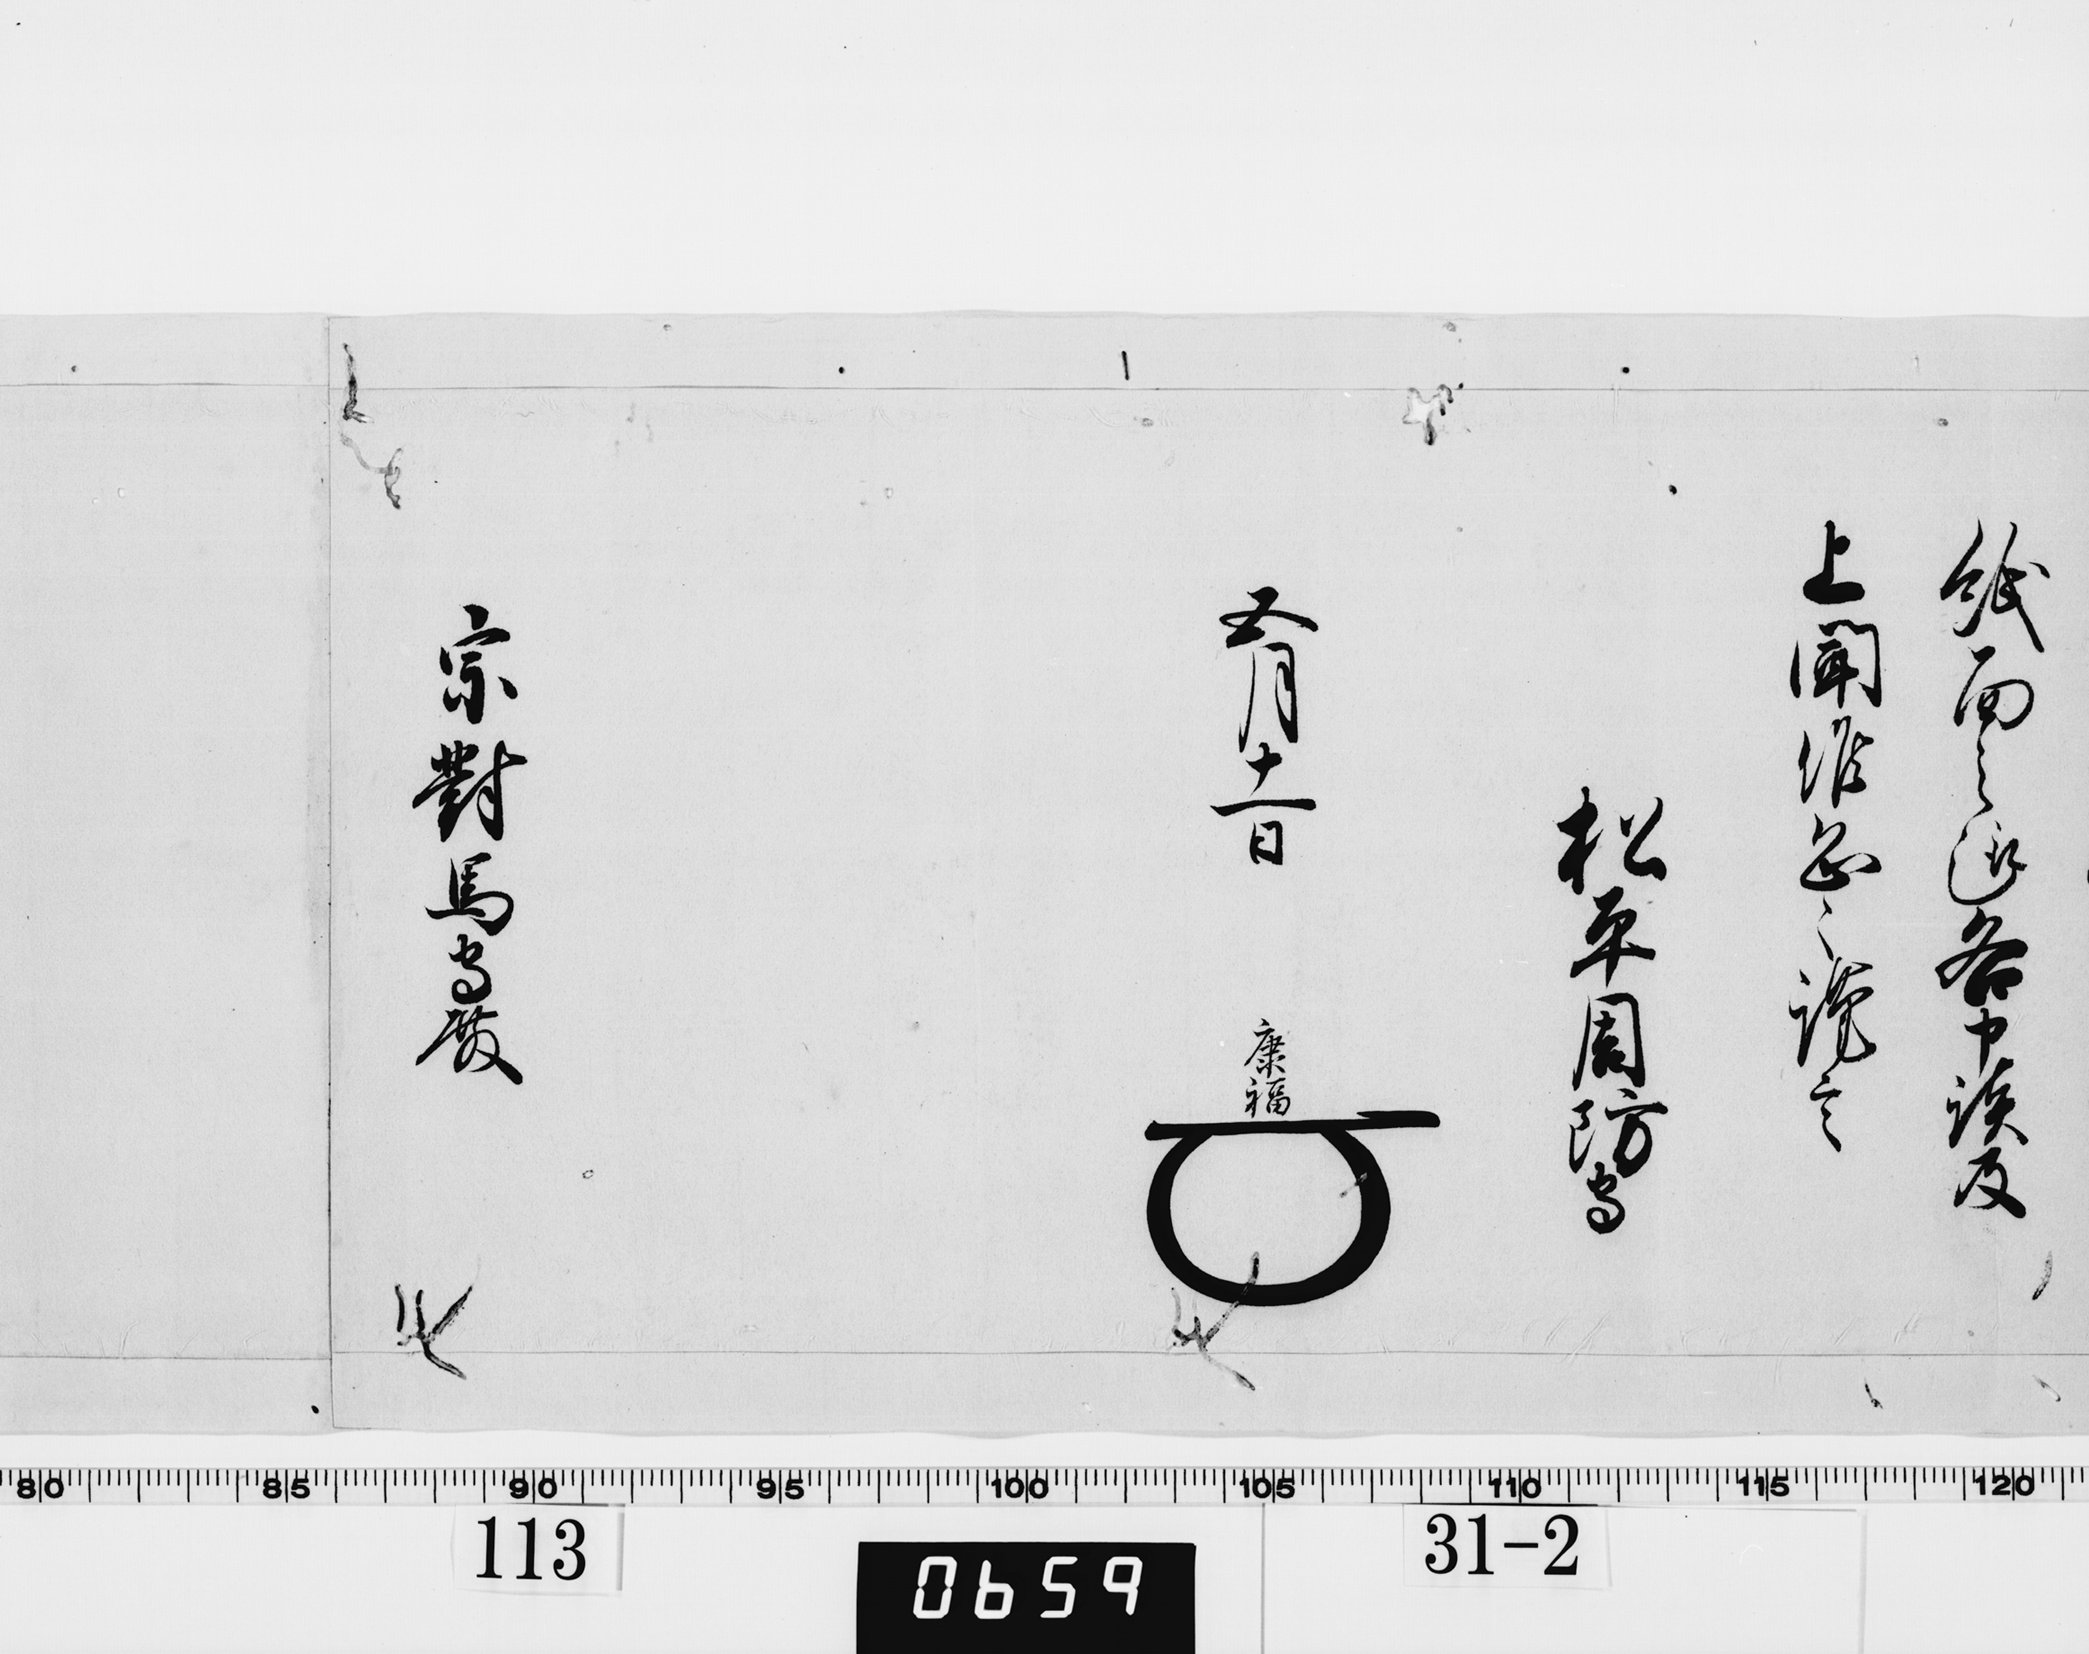 紙面之趣各申談及
上聞候恐々謹言
松平周防守
五月十一日
康福
宗對馬守殿
80 85 90 95 100 105 110 115 120
113
0659
31-2